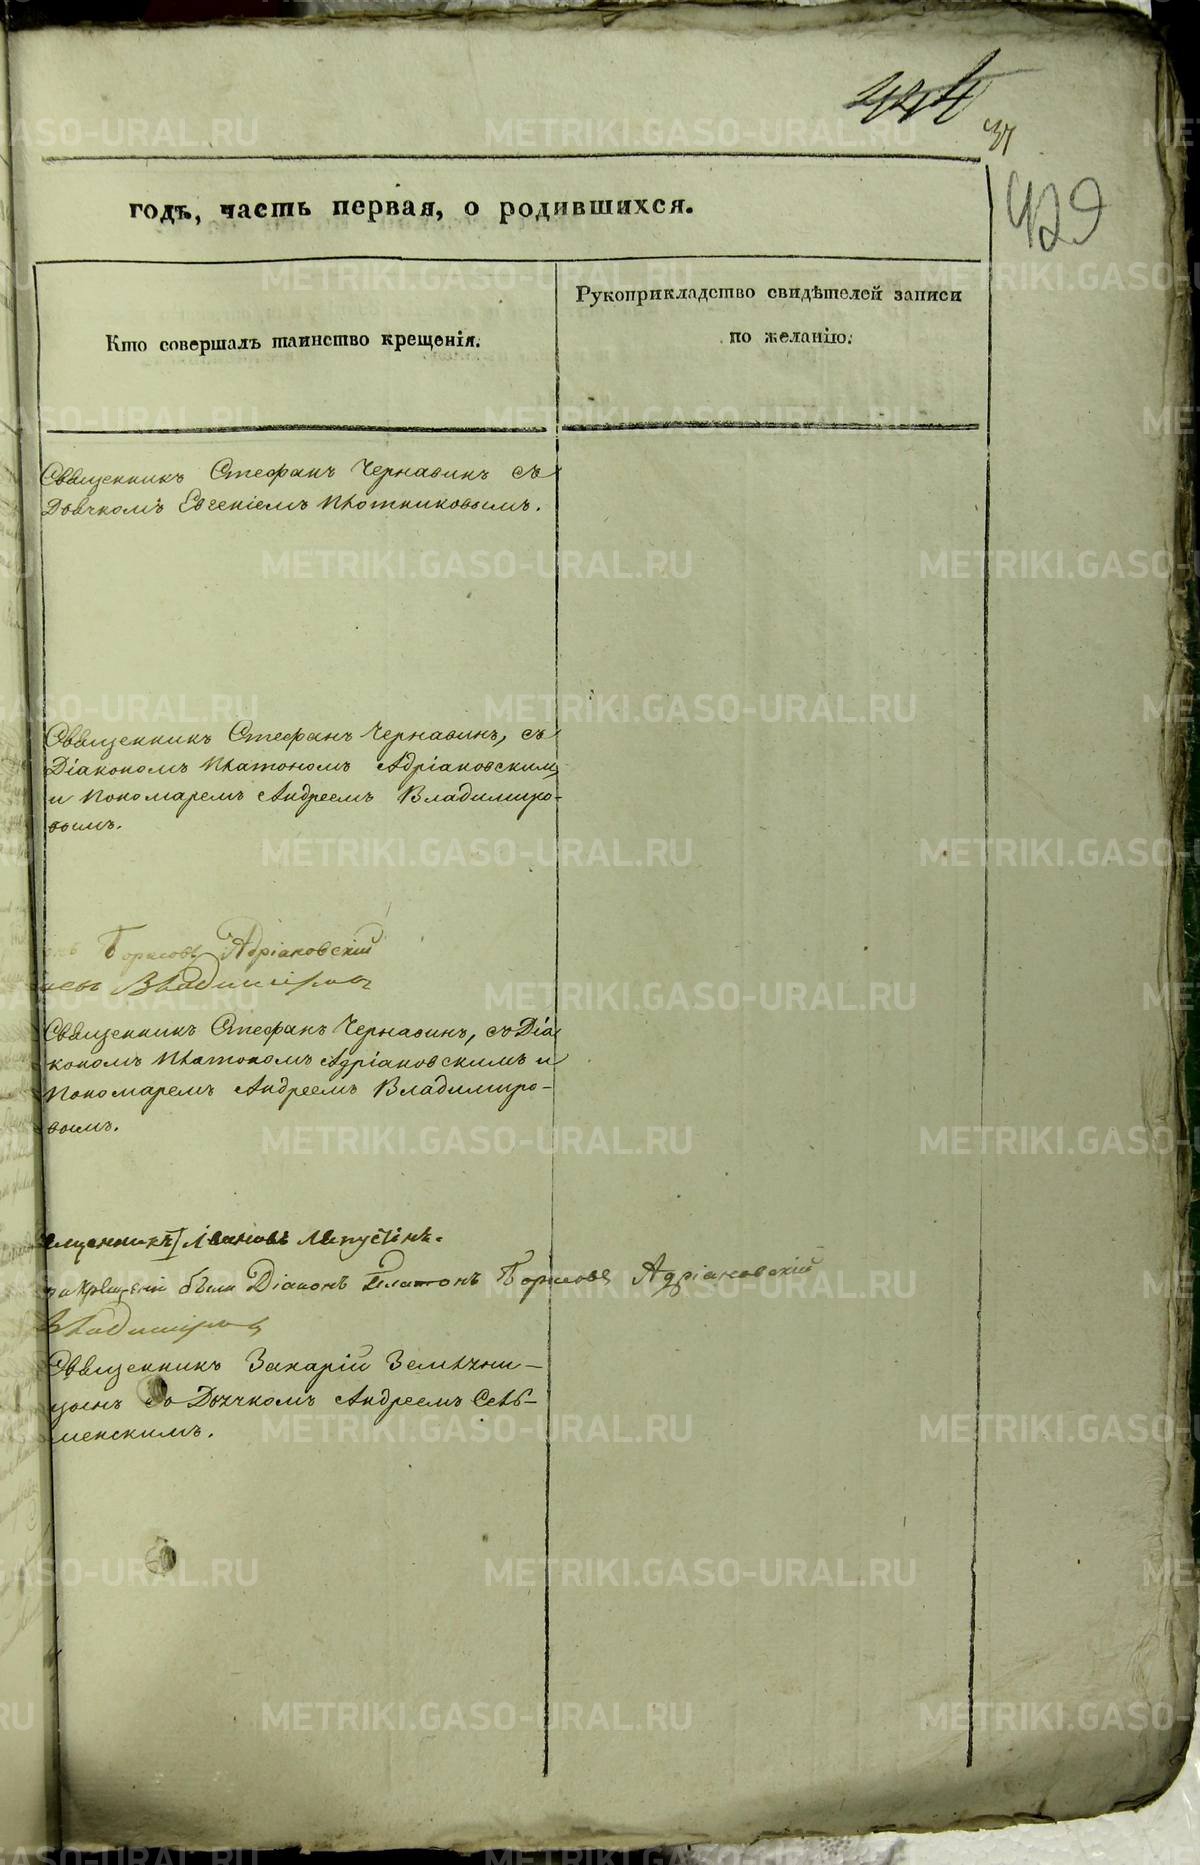 444
37
429
годъ, часть первая, о родившихся.
Кто совершалъ таинство крещенія.
Рукоприкладство свидѣтелей записи
по желанію.
Священникъ Стефанъ Чернавинъ съ
Дьячкомъ Евгеніемъ Плотниковымъ.
Священникъ Стефанъ Чернавинъ, съ
Діакономъ Платономъ Адріановскимъ
и Пономаремъ Андреемъ Владимиро-
вымъ.
Борисовъ Адріановскій
Владимировъ
Священникъ Стефанъ Чернавинъ, съ Діа
кономъ Платономъ Адріановскимъ и
Пономаремъ Андреемъ Владимиро-
вымъ.
Ивановъ
были Діаконъ Платонъ Борисовъ Адріановскій
Владимировъ
Священникъ Захарій Земляни-
цынъ со Дьячкомъ Андреемъ Сель-
менскимъ.
METRIKI.GASO-URAL.RU